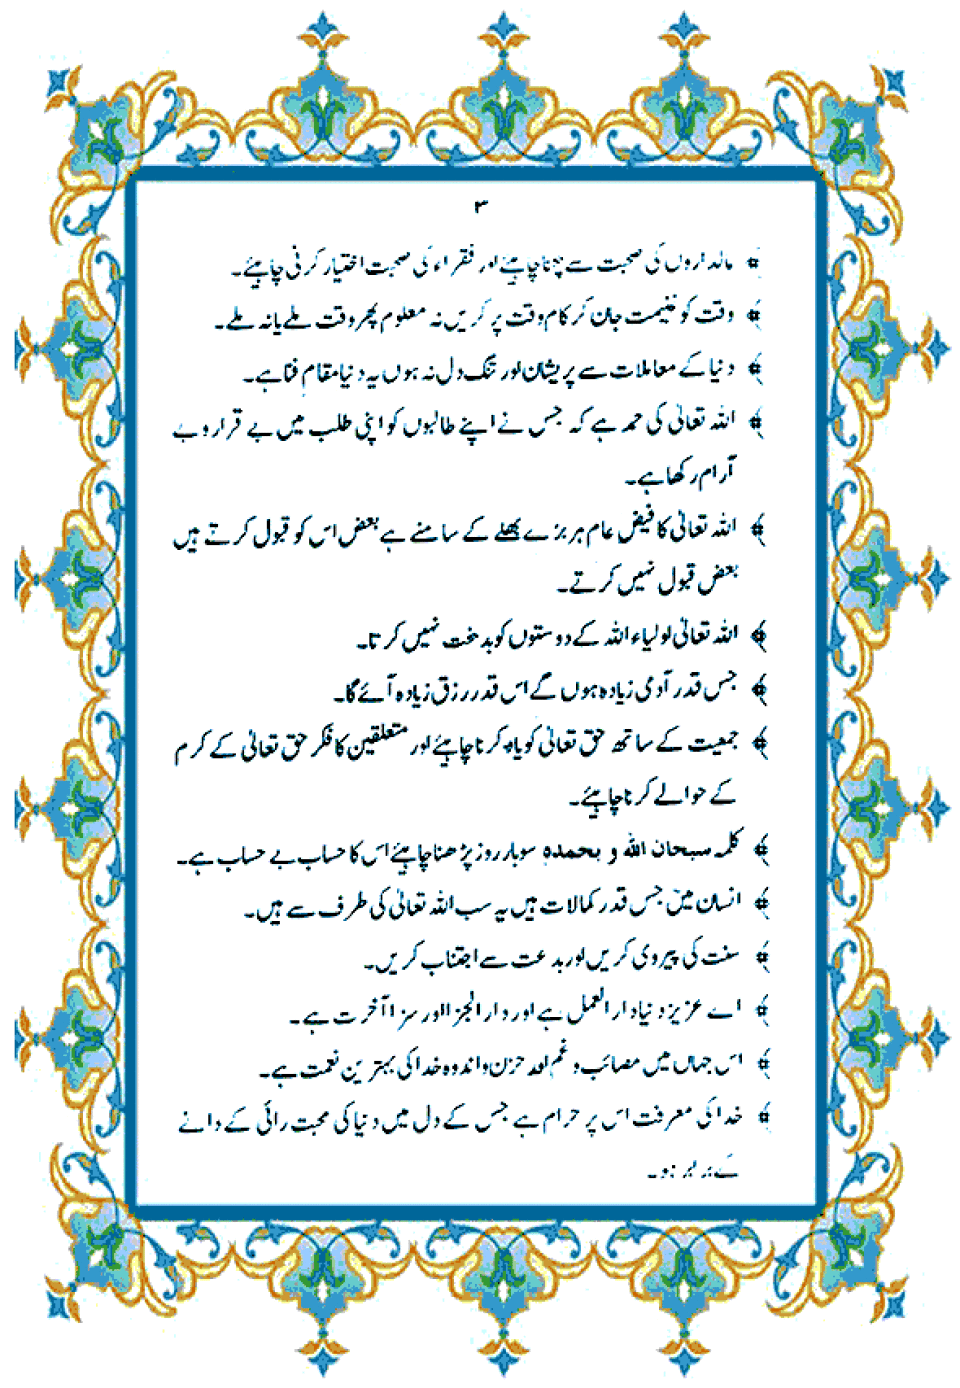 ۳
مالداروں کی صحبت سے بچنا چاہئے اور فقراء کی صحبت اختیار کرنی چاہئے۔
وقت کو غنیمت جان کر کام وقت پر کریں نہ معلوم پھر وقت ملے یا نہ ملے۔
دنیا کے معاملات سے پریشان اور تنگ دل نہ ہوں یہ دنیا مقام فنا ہے۔
اللہ تعالیٰ کی حمد ہے کہ جس نے اپنے طالبوں کو اپنی طلب میں بے قرار و بے
آرام رکھا ہے۔
اللہ تعالیٰ کا فیض عام ہر بڑے بھلے کے سامنے ہے بعض اس کو قبول کرتے ہیں
بعض قبول نہیں کرتے۔
اللہ تعالیٰ اولیاء اللہ کے دوستوں کو بدبخت نہیں کرتا۔
جس قدر آدمی زیادہ ہوں گے اس قدر رزق زیادہ آئے گا۔
جمعیت کے ساتھ حق تعالیٰ کو یاد کرنا چاہئے اور متعلقین کا فکر حق تعالیٰ کے کرم
کے حوالے کرنا چاہئے۔
کلمہ سبحان اللہ و بحمدہ سو بار روز پڑھنا چاہئے اس کا حساب بے حساب ہے۔
انسان میں جس قدر کمالات ہیں یہ سب اللہ تعالیٰ کی طرف سے ہیں۔
سنت کی پیروی کریں اور بدعت سے اجتناب کریں۔
اے عزیز دنیا دار العمل ہے اور دار الجزا اور سزا آخرت ہے۔
اس جہاں میں مصائب و غم اور حزن و اندوہ خدا کی بہترین نعمت ہے۔
خدا کی معرفت اس پر حرام ہے جس کے دل میں دنیا کی محبت رائی کے دانے
کے برابر ہو۔